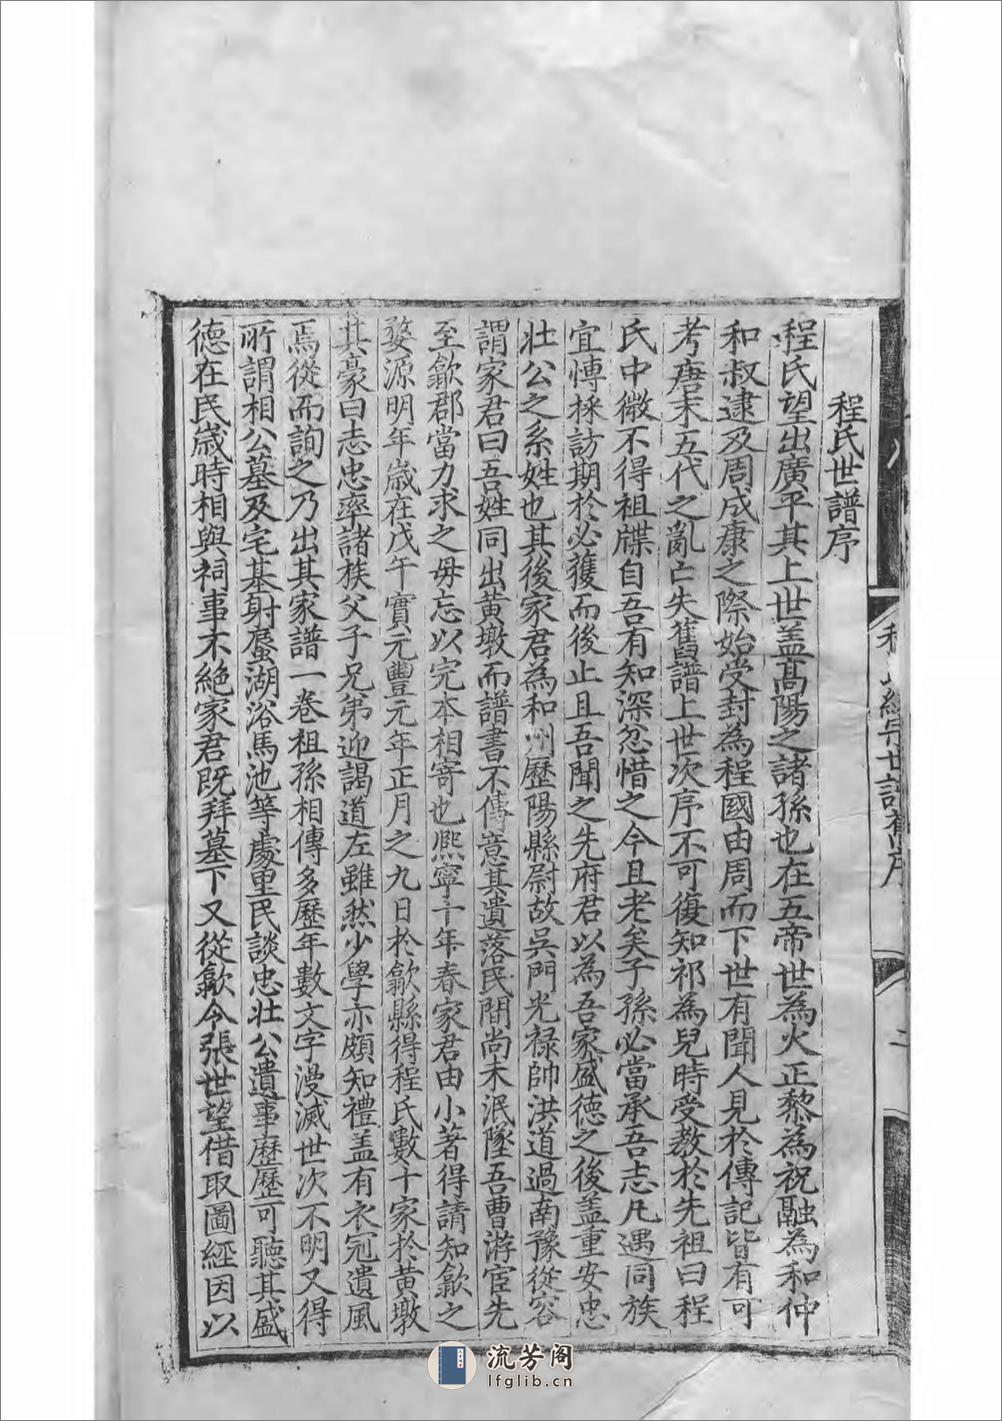 程氏世譜序
程氏望出廣平其上世盖髙陽之諸孫也在五帝世為火正黎為祝融為和仲
和叔逮及周成康之際始受封為程國由周而下世有聞人見於傳記皆有可
考唐末五代之亂亡失舊譜上世次序不可復知祁為兒時受教於先祖曰程
氏中微不得祖牒自吾有知深忿惜之今且老矣子孫必當承吾志凡遇同族
宜愽採訪期於必獲而後止且吾聞之先府君以為吾家盛德之後盖重安忠
壮公之系姓也其後家君為和州歷陽縣尉故吳門光禄帥洪道過南豫從容
謂家君曰吾姓同出黄墩而譜書不傳意其遺落民間尚未泯墜吾曹游宦先
至歙郡當力求之毋忘以完本相寄也熈寧十年春家君由小著得請知歙之
婺源明年歳在戊午實元豐元年正月之九日於歙縣得程氏數十家於黄墩
其豪曰志忠率諸族父子兄弟迎謁道左雖然少學亦頗知禮盖有衣冠遺風
焉從而詢之乃出其家譜一巻祖孫相傳多歷年數文字漫滅世次不明又得
所謂相公墓及宅基射蜃湖浴馬池等處里民談忠壮公遺事歷歷可聽其盛
德在民歳時相與祠事不絶家君既拜墓下又從歙令張世望借取圖經因以
二
流芳阁
lfglib.cn